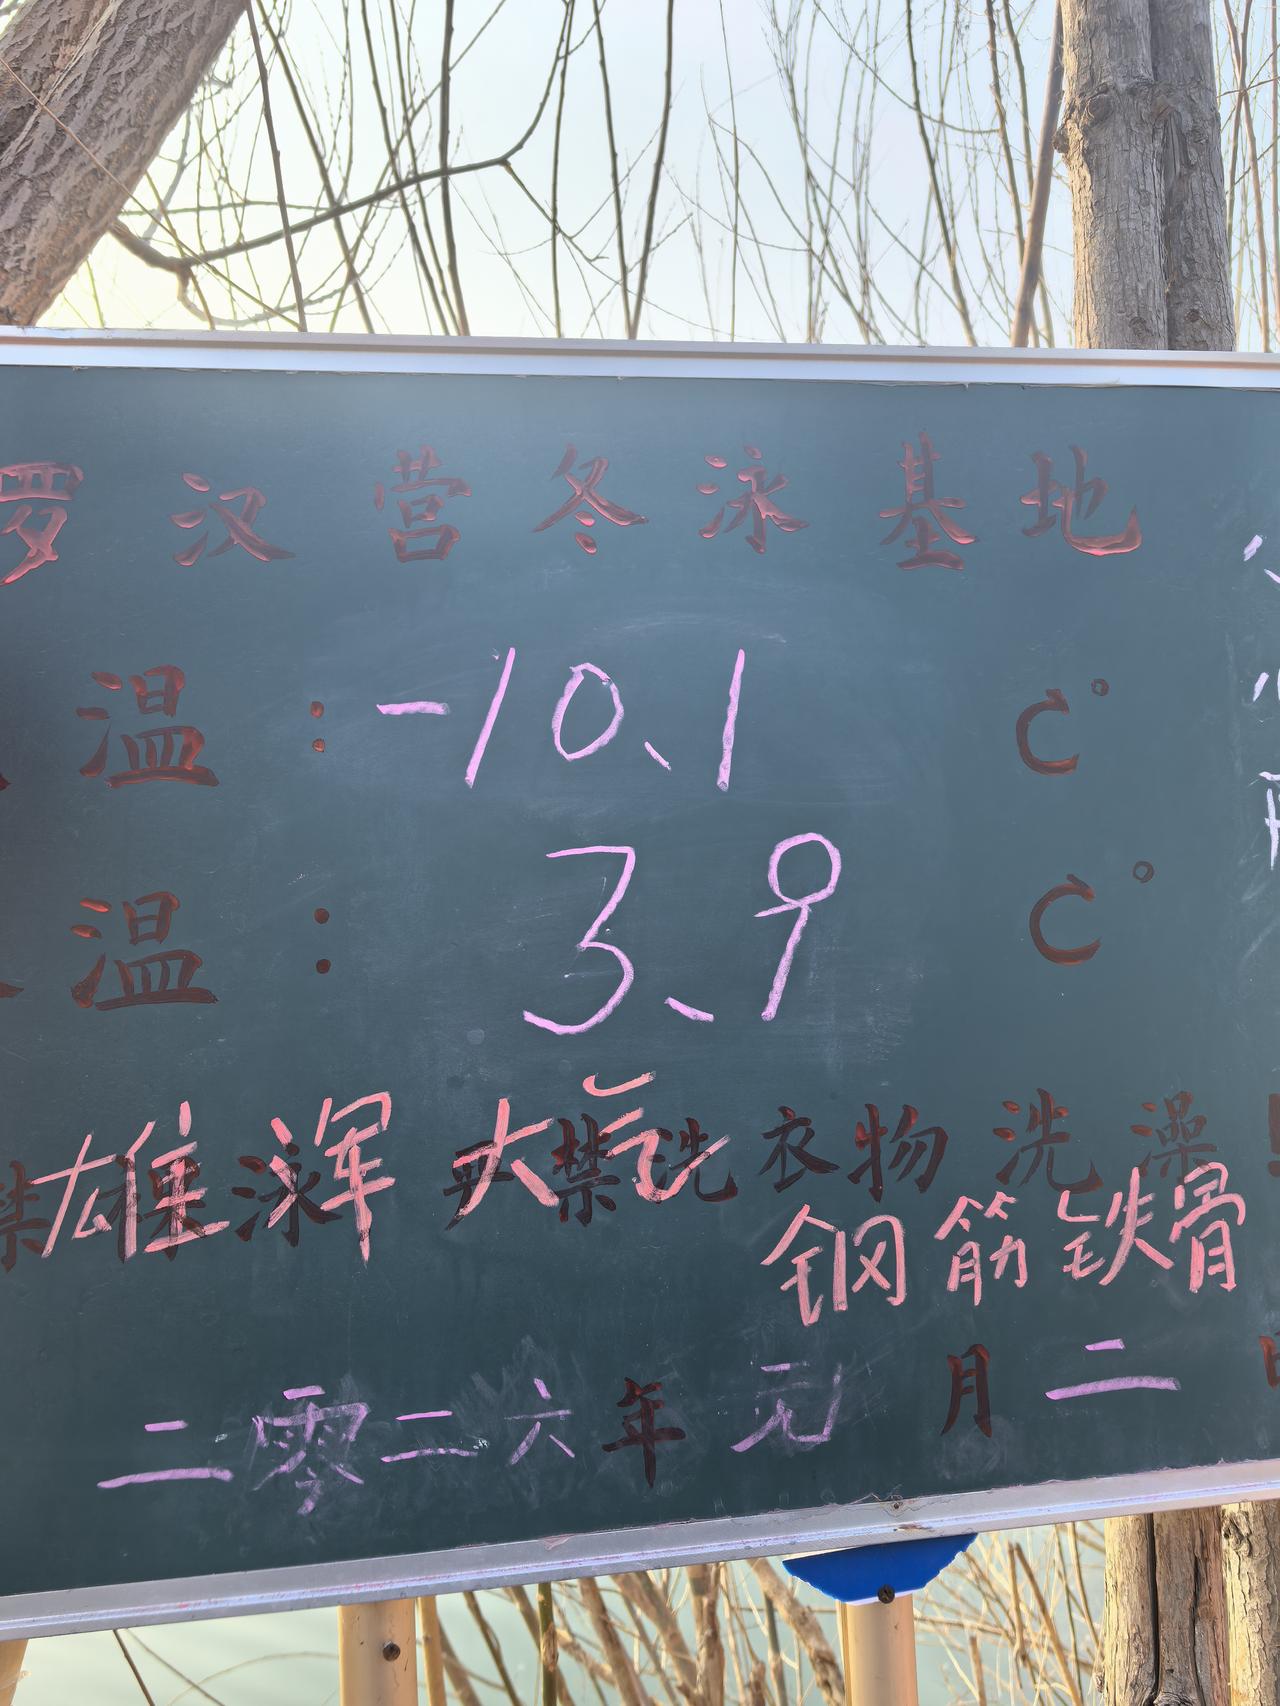 罗汉营冬泳基地
温：-10、1 C°
温：3、9 C°
禁裸泳 严禁洗衣物洗澡
雄浑大气
钢筋铁骨
二零二六年元月二日